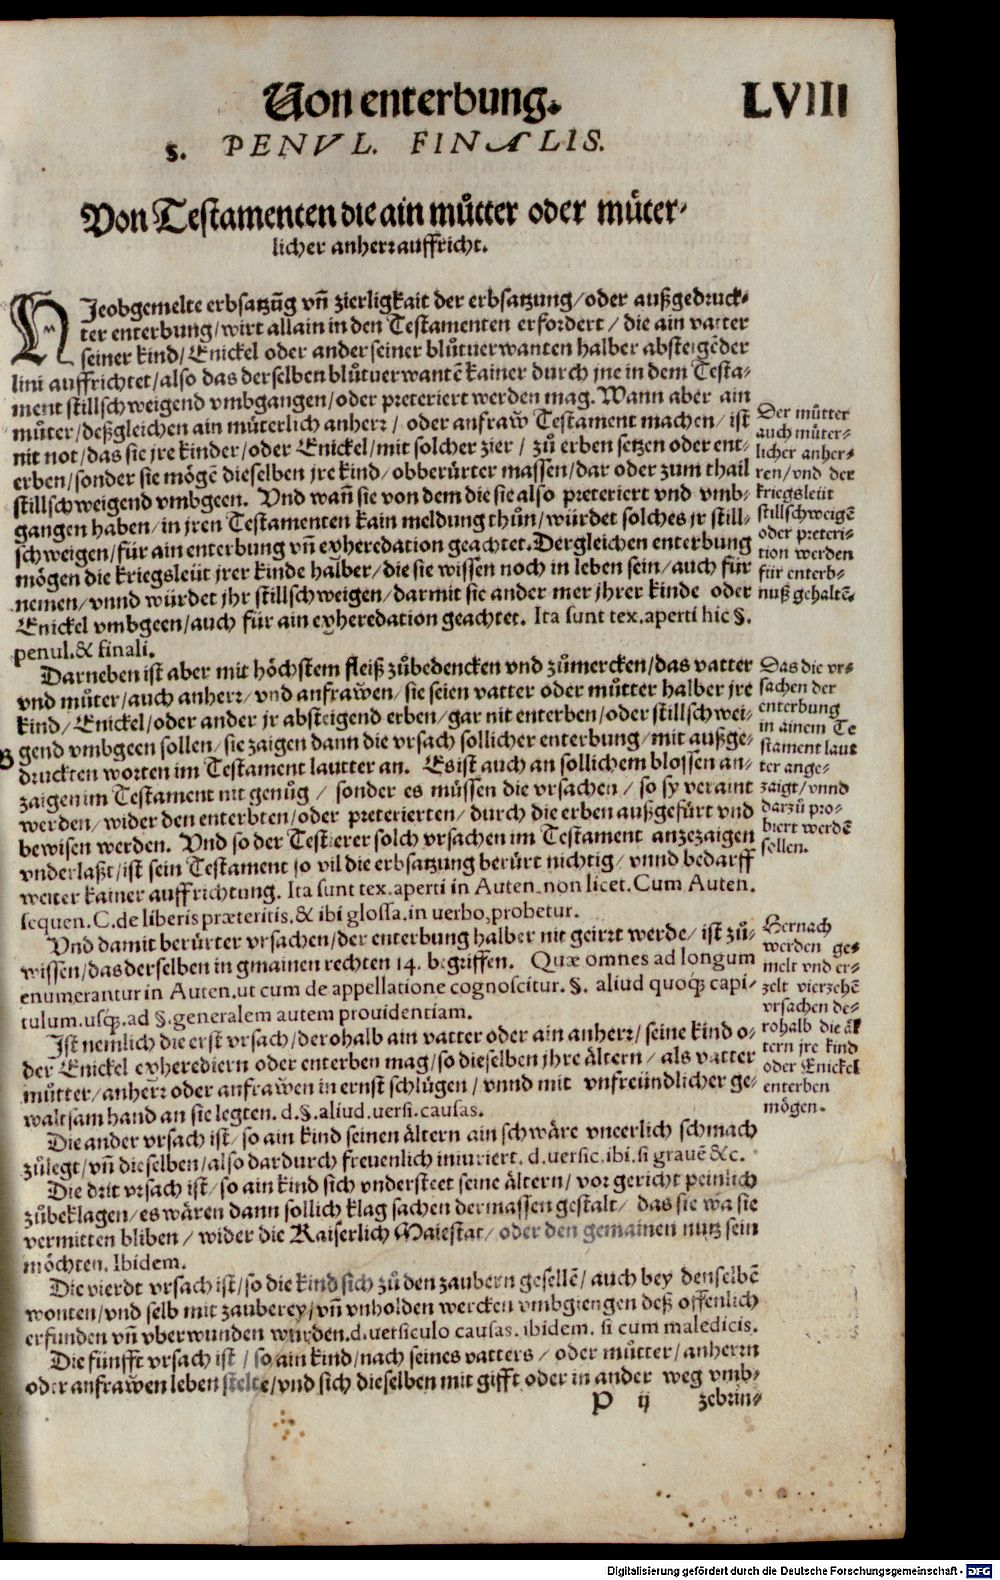 Von enterbung. LVIII
§. PENVL. FINALIS.
Von Testamenten die ain můtter oder můter⸗
licher anherr auffricht.
NJeobgemelte erbsatzūg vñ zierligkait der erbsatzung/ oder außgedruck⸗
ter enterbung/ wirt allain in den Testamenten erfordert/ die ain vatter
seiner kind/ Enickel oder ander seiner blůtuerwanten halber absteigēder
lini auffrichtet/ also das derselben blůtuerwantē kainer durch jne in dem Testa⸗
ment stillschweigend vmbgangen/ oder preteriert werden mag. Wann aber ain
můter/ deßgleichen ain můterlich anherr/ oder anfraw Testament machen/ ist
nit not/ das sie jre kinder/ oder Enickel/ mit solcher zier/ zů erben setzen oder ent⸗
erben/ sonder sie mögē dieselben jre kind/ obberürter massen/ dar oder zum thail
stillschweigend vmbgeen. Vnd wañ sie von dem die sie also preteriert vnd vmb⸗
gangen haben/ in jren Testamenten kain meldung thůn/ würdet solches jr still⸗
schweigen/ für ain enterbung vñ exheredation geachtet. Dergleichen enterbung
mögen die kriegsleüt jrer kinde halber/ die sie wissen noch in leben sein/ auch für
nemen/ vnnd würdet jhr stillschweigen/ darmit sie ander mer jhrer kinde oder
Enickel vmbgeen/ auch für ain exheredation geachtet. Ita sunt tex. aperti hic §.
penul. & finali.
Der můtter
auch můter⸗
licher anher⸗
ren/ vnd der
kriegsleüt
stillschweigē
oder preteri⸗
tion werden
für enterb⸗
nuß gehaltē.
Darneben ist aber mit höchstem fleiß zůbedencken vnd zůmercken/ das vatter
vnd můter/ auch anherr/ vnd anfrawen/ sie seien vatter oder můtter halber jre
kind/ Enickel/ oder ander jr absteigend erben/ gar nit enterben/ oder stillschwei⸗
B gend vmbgeen sollen/ sie zaigen dann die vrsach sollicher enterbung/ mit außge⸗
druckten worten im Testament lautter an. Es ist auch an sollichem blossen an⸗
zaigen im Testament nit genůg/ sonder es müssen die vrsachen/ so sy veraint
werden/ wider den enterbten/ oder preterierten/ durch die erben außgefürt vnd
bewisen werden. Vnd so der Testierer solch vrsachen im Testament anzezaigen
vnderlaßt/ ist sein Testament so vil die erbsatzung berürt nichtig/ vnnd bedarff
weiter kainer auffrichtung. Ita sunt tex. aperti in Auten. non licet. Cum Auten.
sequen. C. de liberis præteritis. & ibi glossa. in uerbo, probetur.
Das die vr⸗
sachen der
enterbung
in ainem Te
stament laut
ter ange⸗
zaigt/ vnnd
darzů pro⸗
biert werdē
sollen.
Vnd damit berürter vrsachen/ der enterbung halber nit geirrt werde/ ist zů⸗
wissen/ das derselben in gmainen rechten 14. begriffen. Quæ omnes ad longum
enumerantur in Auten. ut cum de appellatione cognoscitur. §. aliud quoq; capi⸗
tulum. usq;. ad §. generalem autem prouidentiam.
Hernach
werden ge⸗
melt vnd er⸗
zelt vierzehē
vrsachen de⸗
rohalb die äl
tern jre kind
oder Enickel
enterben
mögen.
Ist nemlich die erst vrsach/ derohalb ain vatter oder ain anherr/ seine kind o⸗
der Enickel exherediern oder enterben mag/ so dieselben jhre ältern/ als vatter
můtter/ anherr oder anfrawen in ernst schlůgen/ vnnd mit vnfreündlicher ge⸗
waltsam hand an sie legten. d. §. aliud. uersi. causas.
Die ander vrsach ist/ so ain kind seinen ältern ain schwäre vneerlich schmach
zůlegt/ vñ dieselben/ also dardurch freuenlich iniuriert. d. uersic. ibi. si grauē &c.
Die drit vrsach ist/ so ain kind sich vndersteet seine ältern/ vor gericht peinlich
zůbeklagen/ es wären dann sollich klag sachen dermassen gestalt/ das sie wa sie
vermitten bliben/ wider die Kaiserlich Maiestat/ oder den gemainen nutz sein
möchten. Ibidem.
Die vierdt vrsach ist/ so die kind sich zů den zaubern gesellē/ auch bey denselbē
wonten/ vnd selb mit zauberey/ vñ vnholden wercken vmbgiengen deß offenlich
erfunden vñ vberwunden wurden. d. uersiculo causas. ibidem. si cum maledicis.
Die fünfft vrsach ist/ so ain kind/ nach seines vatters/ oder můtter/ anherrn
oder anfrawen leben stelte/ vnd sich dieselben mit gifft oder in ander weg vmb⸗
P ij zebrin⸗
Digitalisierung gefördert durch die Deutsche Forschungsgemeinschaft - DFG